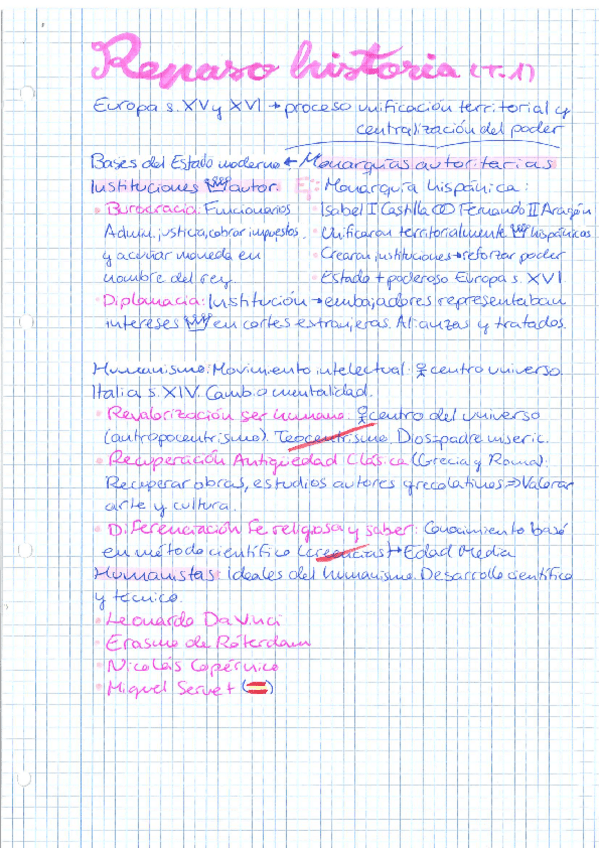 Repaso historia (T.1)
Europa s. XV y XVI → proceso unificación territorial y
centralización del poder
Bases del Estado moderno ← Monarquías autoritarias
Instituciones autor. Ej: Monarquía hispánica:
• Burocracia: Funcionarios • Isabel I Castilla Fernando II Aragón
Admin. justicia, cobrar impuestos • Unificaron territorialmente hispánicos
y acuñar moneda en • Crearon instituciones → reforzar poder
nombre del rey. • Estado + poderoso Europa s. XVI
• Diplomacia: Institución → embajadores representaban
intereses en cortes extranjeras. Alianzas y tratados.
Humanismo: Movimiento intelectual: centro universo.
Italia s. XIV. Cambio mentalidad.
• Revalorización ser humano. centro del universo
(antropocentrismo). Teocentrismo. Dios=padre miseric.
• Recuperación Antigüedad Clásica (Grecia y Roma).
Recuperar obras, estudios autores grecolatinos ⇒ Valorar
arte y cultura.
• Diferenciación fe religiosa y saber: Conocimiento basé
en método científico (creencias) → Edad Media
Humanistas: Ideales del humanismo. Desarrollo científico
y técnico
• Leonardo Da Vinci
• Erasmo de Róterdam
• Nicolás Copérnico
• Miguel Servet (=)